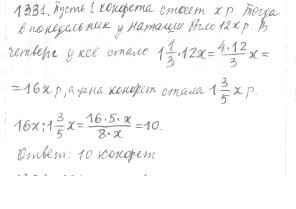 1331. Пусть 1 конфета стоет x р. Тогда
в понедельник у Наташи было 12x р. В
четверг у неё стало 1 1/3 · 12x = 4·12/3 x =
= 16x р, а цена конфет стала 1 3/5 x р.
16x : 1 3/5 x = 16·5·x / 8·x = 10.
Ответ: 10 конфет